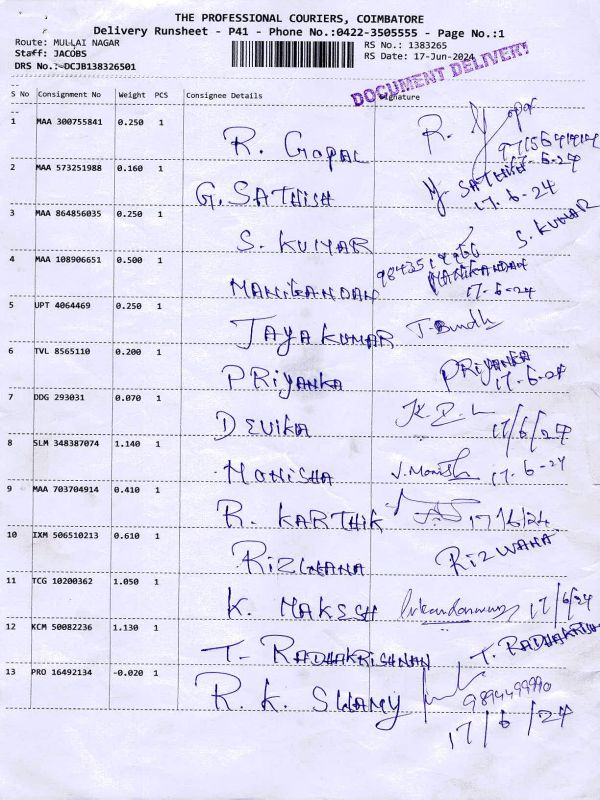 THE PROFESSIONAL COURIERS, COIMBATORE
Delivery Runsheet - P41 - Phone No.:0422-3505555 - Page No.:1
Route: MULLAI NAGAR
Staff: JACOBS
DRS No.:-DCJB138326501
RS No.: 1383265
RS Date: 17-Jun-2024
DOCUMENT DELIVERY
S No Consignment No Weight PCS Consignee Details Signature
1 MAA 300755841 0.250 1 R. Gopal R.
17-6-24
2 MAA 573251988 0.160 1 G. SATHISH SATHISH
17.6-24
3 MAA 864856035 0.250 1 S. KUMAR S. KUMAR
4 MAA 108906651 0.500 1 MANIKANDAN MANIKANDAN
17-6-24
5 UPT 4064469 0.250 1 JAYAKUMAR
6 TVL 8565110 0.200 1 PRiyANKA PRiyANKA
17-6-24
7 DDG 293031 0.070 1 DEVIKA 17/6/24
8 SLM 348387074 1.140 1 MONISHA J. Monish 17-6-24
9 MAA 703704914 0.410 1 R. KARTHIK 17/6/24
10 IXM 506510213 0.610 1 RIZWANA RIZWANA
11 TCG 10200362 1.050 1 K. 17/6/24
12 KCM 50082236 1.130 1 T. RADHAKRISHNAN T. RADHAKRISH
13 PRO 16492134 -0.020 1 R. K. SWAMY 9894499990
17/6/24